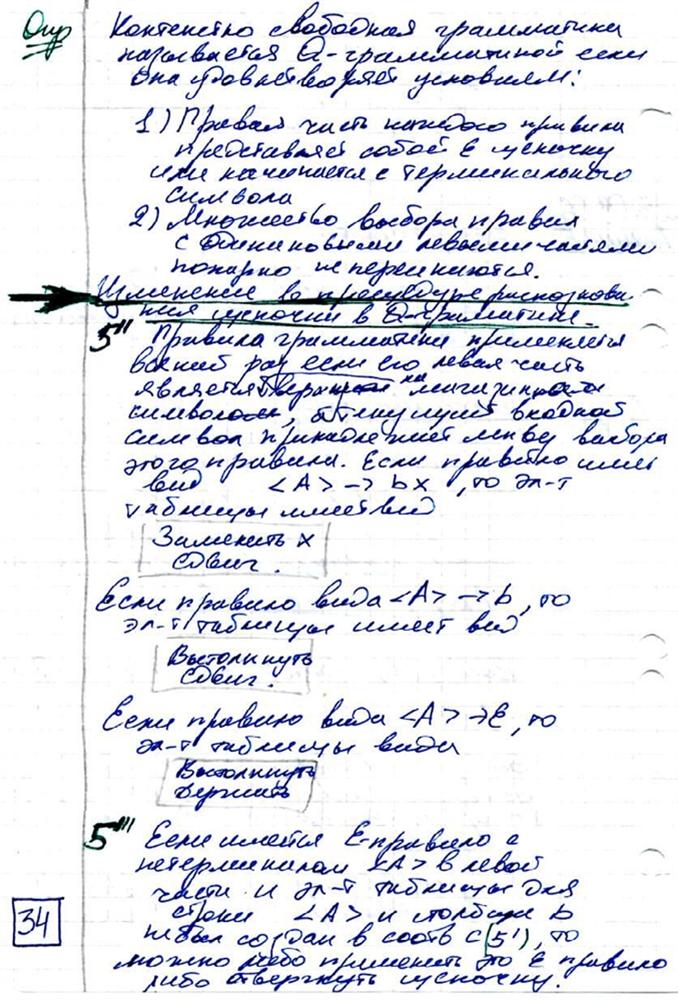 Опр Контекстно свободная грамматика
называется Q-грамматикой если
она удовлетворяет условиям:
1) Правая часть каждого правила
представляет собой ε цепочку
или начинается с терминального
символа
2) Множество выбора правил
с одинаковыми левыми частями
попарно не пересекаются.
Изменение в процедуре распознова
ния цепочки в Q-граматике.
5" Правила грамматики применяется
всякий раз если его левая часть
является на магазинном
символом, а текущий входной
символ принадлежит мн-ву выбора
этого правила. Если правило имеет
вид <A> → bx, то эл-т
таблицы имеет вид
Заменить x
Сдвиг.
Если правило вида <A> → b, то
эл-т таблицы имеет вид
Вытолкнуть
Сдвиг.
Если правило вида <A> → ε, то
эл-т таблицы вида
Вытолкнуть
Держать
5''' Если имеется ε-правило с
нетерминалом <A> в левой
части и эл-т таблицы для
строки <A> и столбца b
не был создан в соотв с (5'), то
можно либо применить это ε правило
либо отвергнуть цепочку.
34